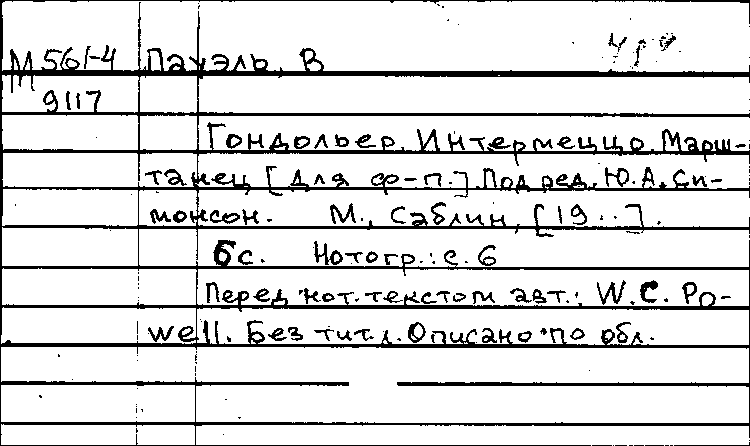 М 561-4 Пауэль, В
9117
Гондольер. Интермеццо. Марш-
танец [для ф-п.]. Под ред. Ю.А. Си-
монсон. М., Саблин, [19..].
6с. Нотогр.: с. 6
Перед нот. текстом авт.: W.C. Po-
well. Без тит. л. Описано по обл.